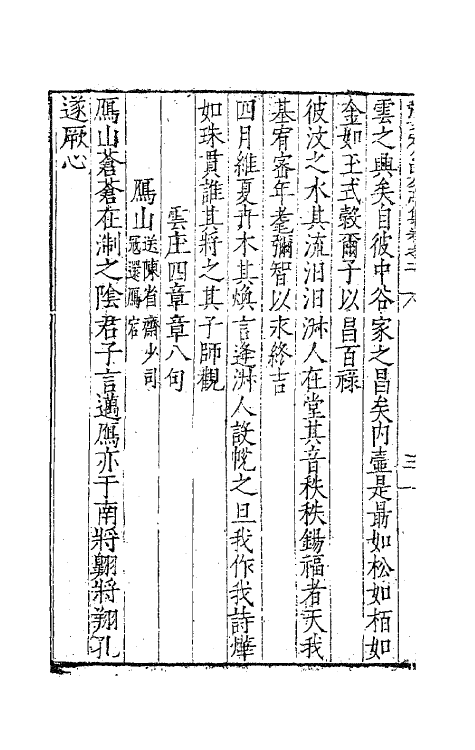 雲之興矣自彼中谷家之昌矣内壼是勗如松如栢如
金如玉式穀爾子以昌百祿
彼汶之水其流汨汨淑人在堂其音秩秩錫福者天我
基宥審年耄彌智以永終吉
四月維夏卉木其煥言逢淑人設帨之旦我作我詩燁
如珠貫誰其將之其子師觀
雲庄四章章八句
鴈山送陳省齋少司
冦還鴈宕
鴈山蒼蒼在淛之陰君子言邁鴈亦于南將翺將翔孔
遂厥心